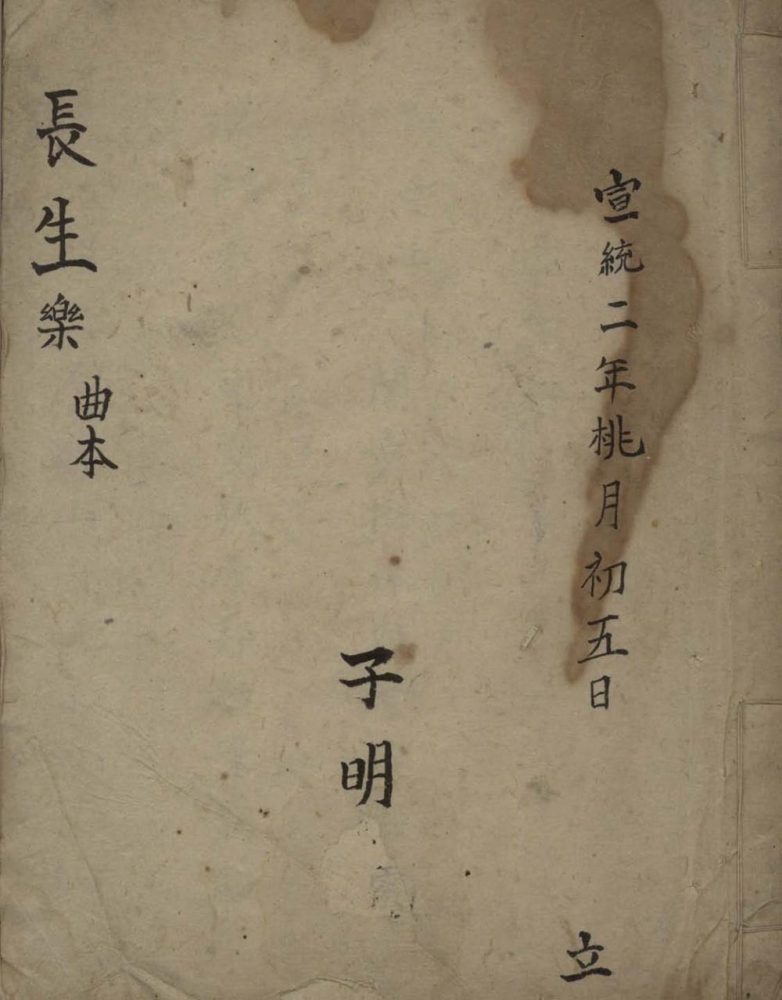 宣統二年桃月初五日
立
子明
長生樂
曲本